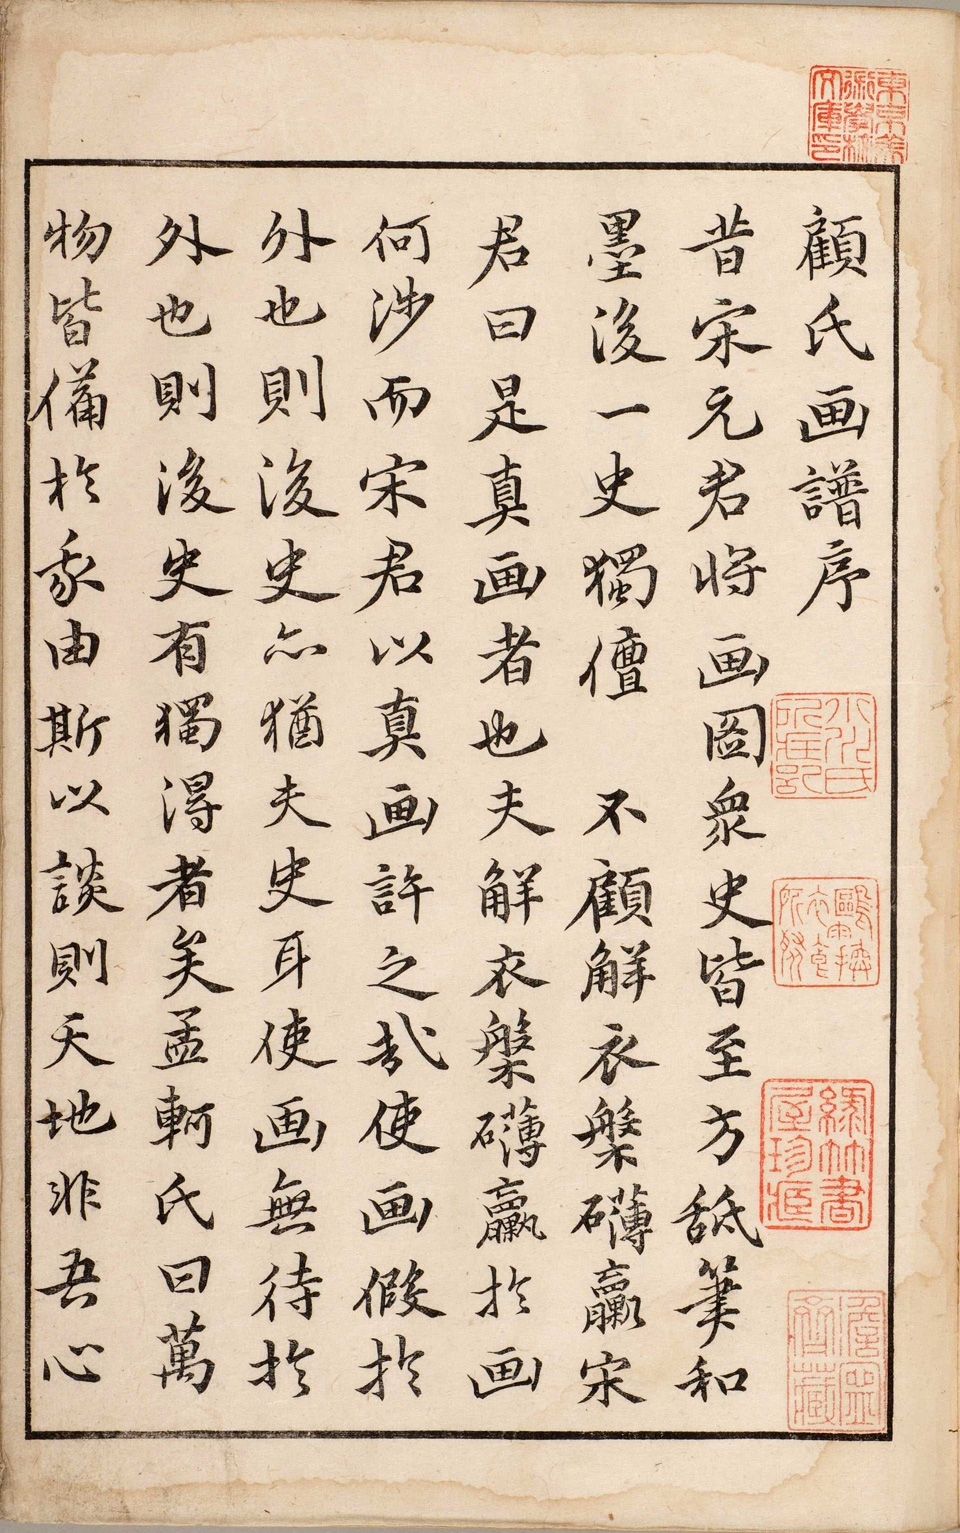 顧氏画譜序
昔宋元君将画圖衆史皆至方舐筆和
墨後一史獨儃 不顧解衣槃礴臝宋
君曰是真画者也夫解衣槃礴臝扵画
何涉而宋君以真画許之哉使画假扵
外也則後史亦猶夫史耳使画無待扵
外也則後史有獨得者矣孟軻氏曰萬
物皆備扵我由斯以談則天地非吾心
東京美術學校文庫印
緑竹書屋珍藏